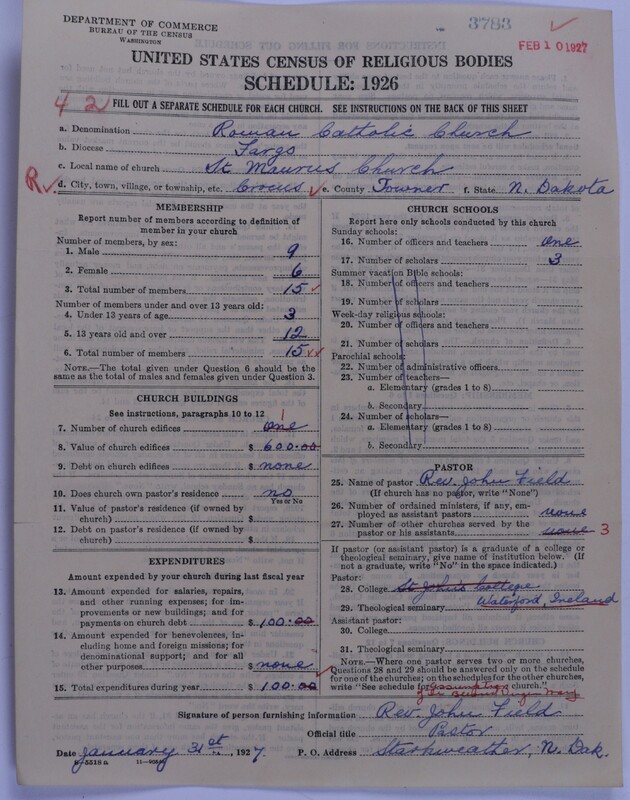 DEPARTMENT OF COMMERCE
BUREAU OF THE CENSUS
WASHINGTON
3783
FEB 10 1927
UNITED STATES CENSUS OF RELIGIOUS BODIES
SCHEDULE: 1926
4 2
FILL OUT A SEPARATE SCHEDULE FOR EACH CHURCH. SEE INSTRUCTIONS ON THE BACK OF THIS SHEET
a. Denomination Roman Catholic Church
b. Diocese Fargo
c. Local name of church St Maurus Church
R
d. City, town, village, or township, etc. Crocus e. County Towner f. State N. Dakota
MEMBERSHIP
Report number of members according to definition of
member in your church
Number of members, by sex:
1. Male 9
2. Female 6
3. Total number of members 15
Number of members under and over 13 years old:
4. Under 13 years of age 3
5. 13 years old and over 12
6. Total number of members 15
NOTE.—The total given under Question 6 should be
same as the total of males and females given under Question 3.
CHURCH BUILDINGS
See instructions, paragraphs 10 to 12
1
7. Number of church edifices one
8. Value of church edifices $ 600.00
9. Debt on church edifices $ none
10. Does church own pastor's residence no
Yes or No
11. Value of pastor's residence (if owned by
church) $
12. Debt on pastor's residence (if owned by
church) $
EXPENDITURES
Amount expended by your church during last fiscal year
13. Amount expended for salaries, repairs,
and other running expenses; for im-
provements or new buildings; and for
payments on church debt $ 100.00
14. Amount expended for benevolences, in-
cluding home and foreign missions; for
denominational support; and for all
other purposes $ none
15. Total expenditures during year $ 100.00
CHURCH SCHOOLS
Report here only schools conducted by this church
Sunday schools:
16. Number of officers and teachers one
17. Number of scholars 3
Summer vacation Bible schools:
18. Number of officers and teachers
19. Number of scholars
Week-day religious schools:
20. Number of officers and teachers
21. Number of scholars
Parochial schools:
22. Number of administrative officers
23. Number of teachers—
a. Elementary (grades 1 to 8)
b. Secondary
24. Number of scholars—
a. Elementary (grades 1 to 8)
b. Secondary
PASTOR
25. Name of pastor Rev. John Field
(If church has no pastor, write "None")
26. Number of ordained ministers, if any, em-
ployed as assistant pastors none
27. Number of other churches served by the
pastor or his assistants none 3
If pastor (or assistant pastor) is a graduate of a college or
theological seminary, give name of institution below. (If
not a graduate, write "No" in the space indicated.)
Pastor:
28. College St John's College
29. Theological seminary Waterford, Ireland
Assistant pastor:
30. College
31. Theological seminary
NOTE.—Where one pastor serves two or more churches,
Questions 28 and 29 should be answered only on the schedule
for one of the churches; on the schedules for the other churches,
write "See schedule for Assumption church."
Signature of person furnishing information Rev. John Field
Official title Pastor
Date January 31st, 1927. P. O. Address Starkweather, N. Dak.